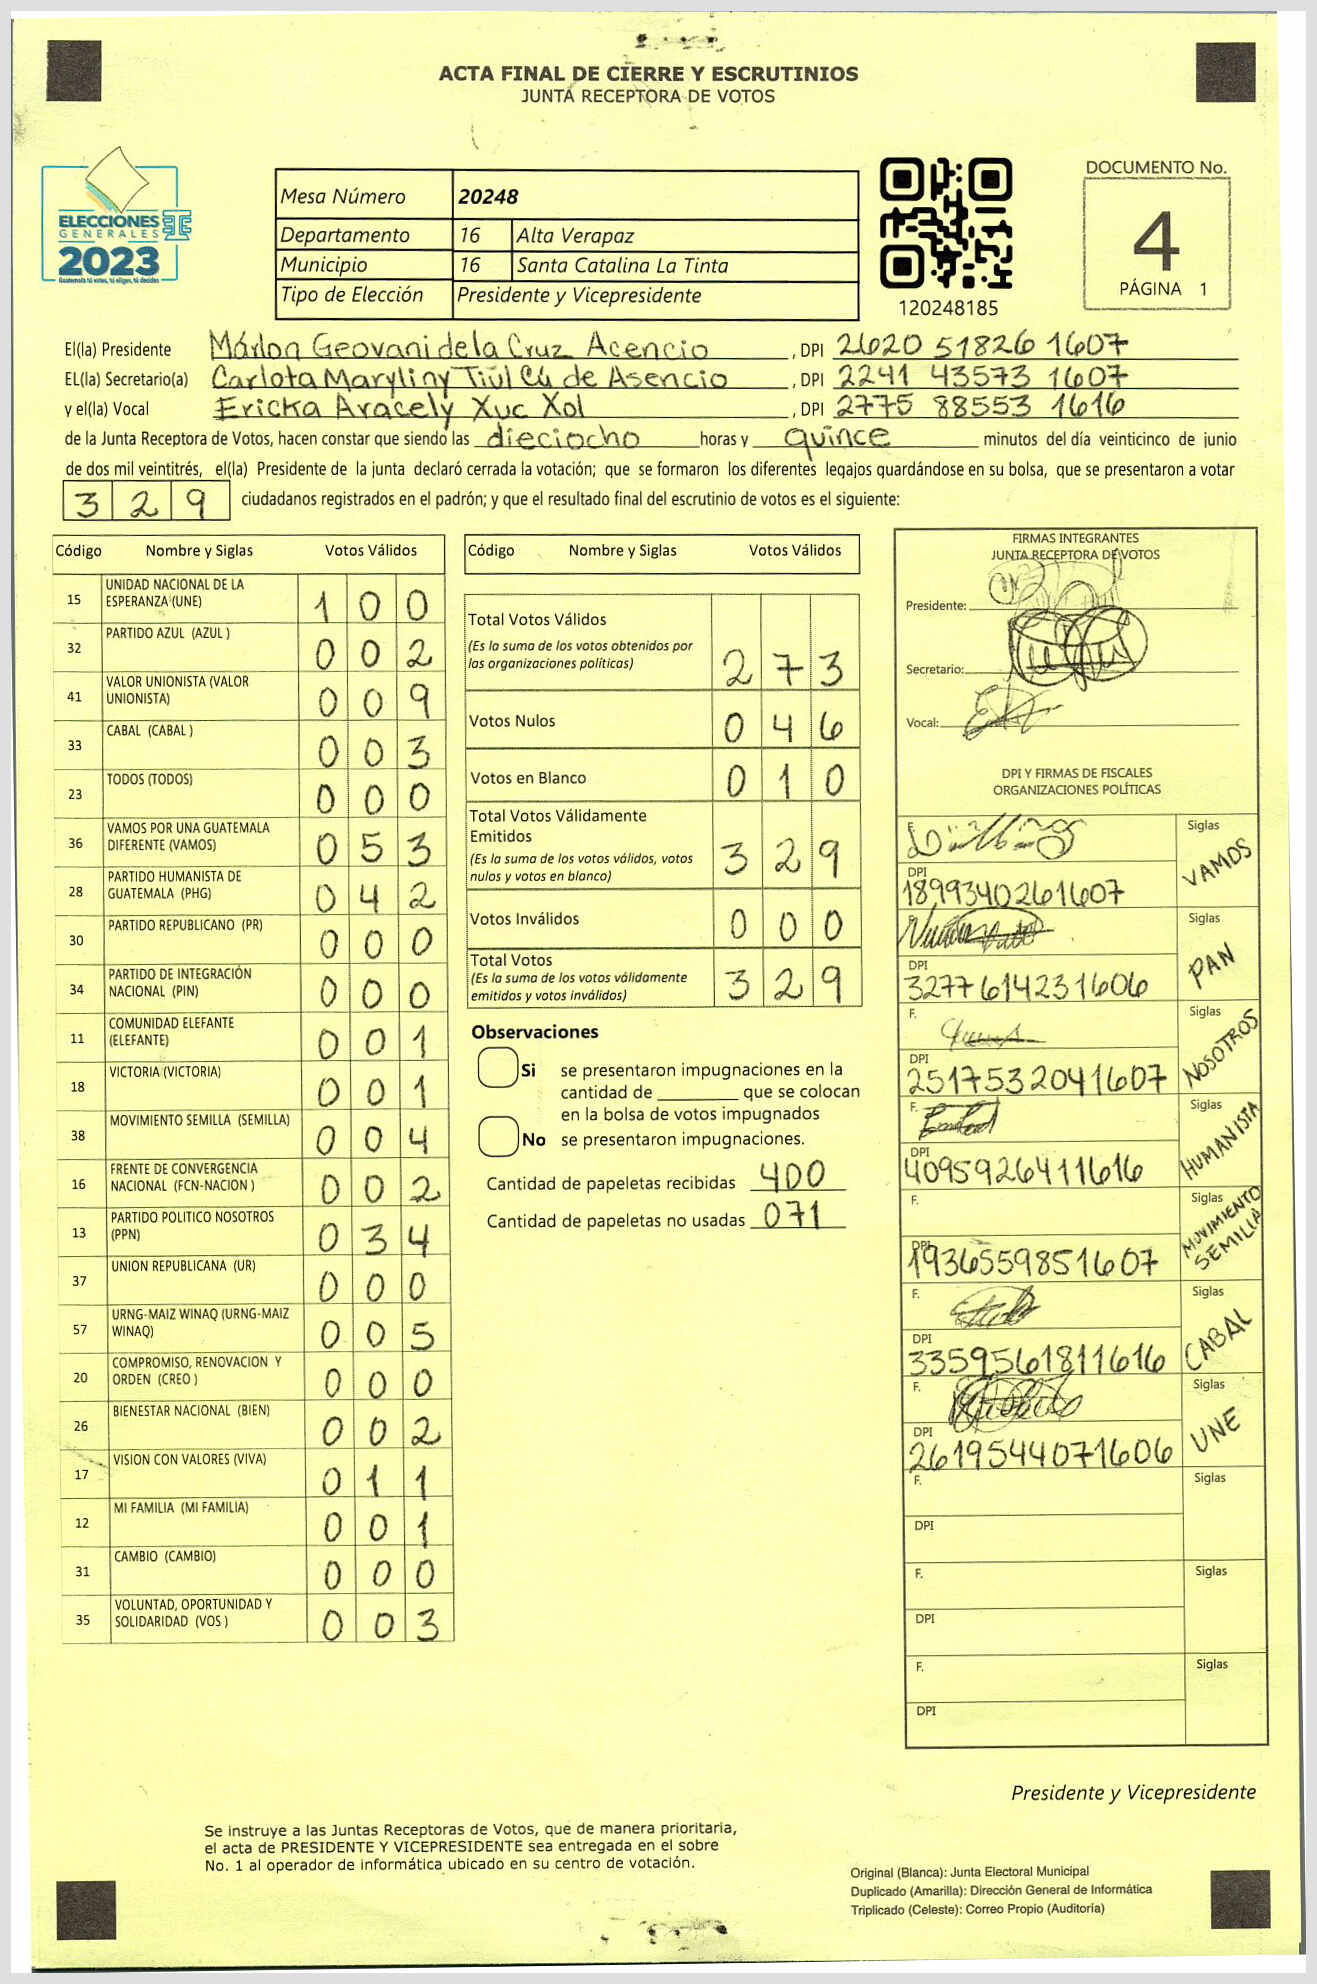 ACTA FINAL DE CIERRE Y ESCRUTINIOS
JUNTA RECEPTORA DE VOTOS
ELECCIONES
GENERALES
2023
Guatemala tú votas, tú eliges, tú decides
Mesa Número 20248
Departamento 16 Alta Verapaz
Municipio 16 Santa Catalina La Tinta
Tipo de Elección Presidente y Vicepresidente
120248185
DOCUMENTO No.
4
PÁGINA 1
El(la) Presidente Márlon Geovani dela Cruz Acencio, DPI 2620 51826 1607
EL(la) Secretario(a) Carlota Maryliny Tiul Cú de Asencio, DPI 2241 43573 1607
y el(la) Vocal Ericka Aracely Xuc Xol, DPI 2775 88553 1616
de la Junta Receptora de Votos, hacen constar que siendo las dieciocho horas y quince minutos del día veinticinco de junio
de dos mil veintitrés, el(la) Presidente de la junta declaró cerrada la votación; que se formaron los diferentes legajos guardándose en su bolsa, que se presentaron a votar
3 2 9 ciudadanos registrados en el padrón; y que el resultado final del escrutinio de votos es el siguiente:
Código Nombre y Siglas Votos Válidos
15 UNIDAD NACIONAL DE LA ESPERANZA (UNE) 1 0 0
32 PARTIDO AZUL (AZUL ) 0 0 2
41 VALOR UNIONISTA (VALOR UNIONISTA) 0 0 9
33 CABAL (CABAL ) 0 0 3
23 TODOS (TODOS) 0 0 0
36 VAMOS POR UNA GUATEMALA DIFERENTE (VAMOS) 0 5 3
28 PARTIDO HUMANISTA DE GUATEMALA (PHG) 0 4 2
30 PARTIDO REPUBLICANO (PR) 0 0 0
34 PARTIDO DE INTEGRACIÓN NACIONAL (PIN) 0 0 0
11 COMUNIDAD ELEFANTE (ELEFANTE) 0 0 1
18 VICTORIA (VICTORIA) 0 0 1
38 MOVIMIENTO SEMILLA (SEMILLA) 0 0 4
16 FRENTE DE CONVERGENCIA NACIONAL (FCN-NACION ) 0 0 2
13 PARTIDO POLITICO NOSOTROS (PPN) 0 3 4
37 UNION REPUBLICANA (UR) 0 0 0
57 URNG-MAIZ WINAQ (URNG-MAIZ WINAQ) 0 0 5
20 COMPROMISO, RENOVACION Y ORDEN (CREO ) 0 0 0
26 BIENESTAR NACIONAL (BIEN) 0 0 2
17 VISION CON VALORES (VIVA) 0 1 1
12 MI FAMILIA (MI FAMILIA) 0 0 1
31 CAMBIO (CAMBIO) 0 0 0
35 VOLUNTAD, OPORTUNIDAD Y SOLIDARIDAD (VOS ) 0 0 3
Código Nombre y Siglas Votos Válidos
Total Votos Válidos
(Es la suma de los votos obtenidos por
las organizaciones políticas) 2 7 3
Votos Nulos 0 4 6
Votos en Blanco 0 1 0
Total Votos Válidamente
Emitidos
(Es la suma de los votos válidos, votos
nulos y votos en blanco) 3 2 9
Votos Inválidos 0 0 0
Total Votos
(Es la suma de los votos válidamente
emitidos y votos inválidos) 3 2 9
Observaciones
Si se presentaron impugnaciones en la
cantidad de ________ que se colocan
en la bolsa de votos impugnados
No se presentaron impugnaciones.
Cantidad de papeletas recibidas 400
Cantidad de papeletas no usadas 071
FIRMAS INTEGRANTES
JUNTA RECEPTORA DE VOTOS
Presidente:
Secretario:
Vocal:
DPI Y FIRMAS DE FISCALES
ORGANIZACIONES POLÍTICAS
F. Siglas VAMOS
DPI 1899340261607
Siglas PAN
DPI 3277614231606
F. Siglas NOSOTROS
DPI 2517532041607
F. Siglas HUMANISTA
DPI 4095926411616
F. Siglas MOVIMIENTO SEMILLA
DPI 1936559851607
F. Siglas CABAL
DPI 3359561811616
F. Siglas UNE
DPI 2619544071606
F. Siglas
DPI
F. Siglas
DPI
F. Siglas
DPI
Presidente y Vicepresidente
Se instruye a las Juntas Receptoras de Votos, que de manera prioritaria,
el acta de PRESIDENTE Y VICEPRESIDENTE sea entregada en el sobre
No. 1 al operador de informática ubicado en su centro de votación.
Original (Blanca): Junta Electoral Municipal
Duplicado (Amarilla): Dirección General de Informática
Triplicado (Celeste): Correo Propio (Auditoría)